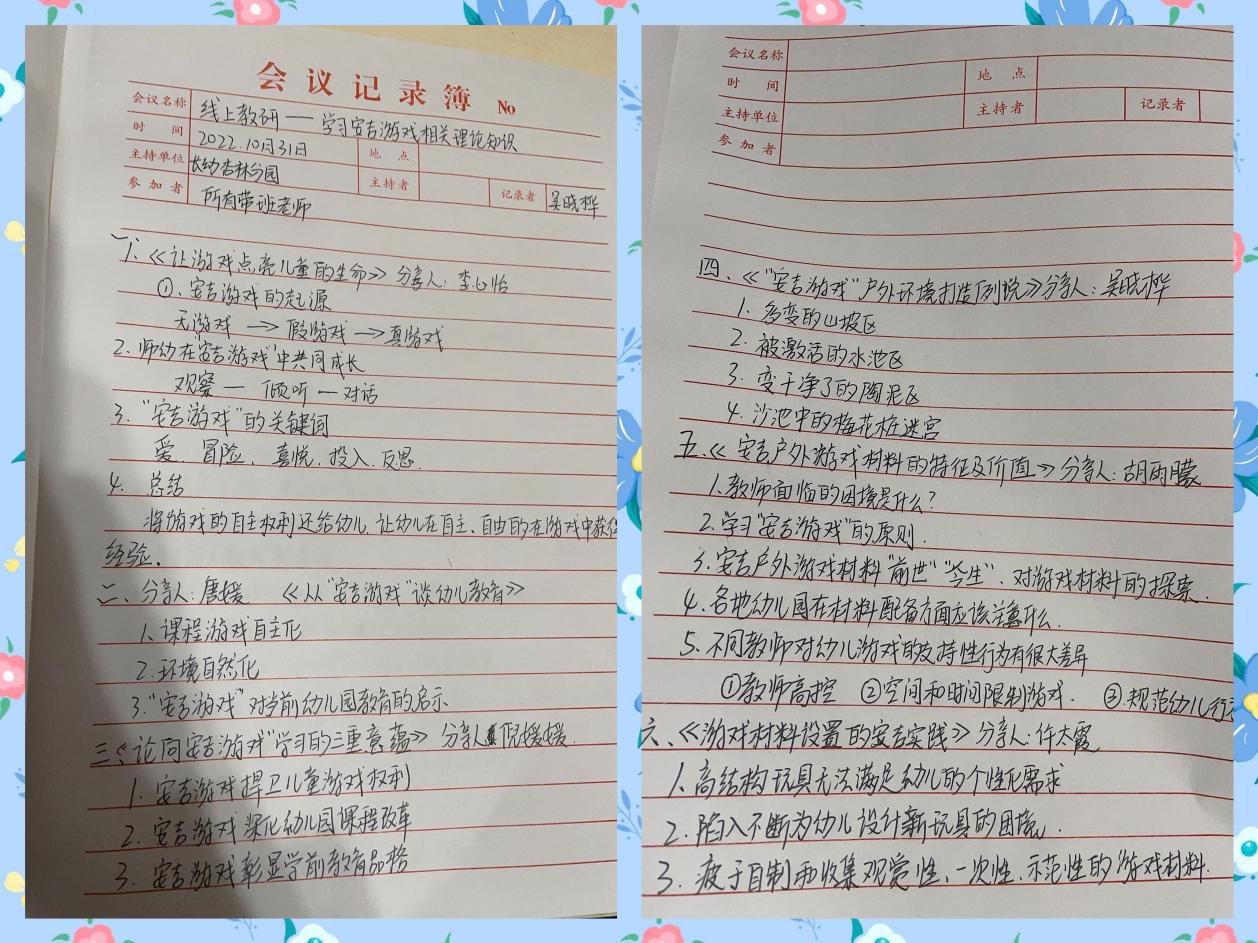 会议记录簿 No
会议名称 线上教研——学习安吉游戏相关理论知识
时间 2022.10月31日 地点
主持单位 长幼杏林分园 主持者 记录者 吴晓桦
参加者 所有带班老师
一、1.《让游戏点亮儿童的生命》分享人:李心怡
①、安吉游戏的起源
无游戏→假游戏→真游戏
2.师幼在"安吉游戏"中共同成长
观察—倾听—对话
3."安吉游戏"的关键词
爱 冒险、喜悦、投入、反思.
4.总结
将游戏的自主权利还给幼儿,让幼儿在自主、自由的在游戏中获得
经验.
二、分享人:唐媛 《从"安吉游戏"谈幼儿教育》
1.课程游戏自主化
2.环境自然化
3."安吉游戏"对当前幼儿园教育的启示
三、《论向安吉游戏"学习的三重意蕴》分享人 倪媛媛.
1.安吉游戏捍卫儿童游戏权利
2.安吉游戏深化幼儿园课程改革
3.安吉游戏彰显学前教育品格
会议名称
时间 地点
主持单位 主持者 记录者
参加者
四、《"安吉游戏"户外环境打造例说》分享人:吴晓桦
1.多变的山坡区
2.被激活的水池区
3.变干净了的陶泥区
4.沙池中的梅花桩迷宫
五.《安吉户外游戏材料的特征及价值》分享人:胡雨朦
1.教师面临的困境是什么?
2.学习"安吉游戏"的原则.
3.安吉户外游戏材料"前世""今生"、对游戏材料的探索.
4.各地幼儿园在材料配备方面应该注意什么.
5.不同教师对幼儿游戏的支持性行为有很大差异
①教师高控 ②空间和时间限制游戏. ③.规范幼儿行
六、《游戏材料设置的安吉实践》分享人:许大霞
1.高结构玩具无法满足幼儿的个性化需求
2.陷入不断为幼儿设计新玩具的困境.
3.疲于自制和收集观赏性、一次性、示范性的游戏材料.